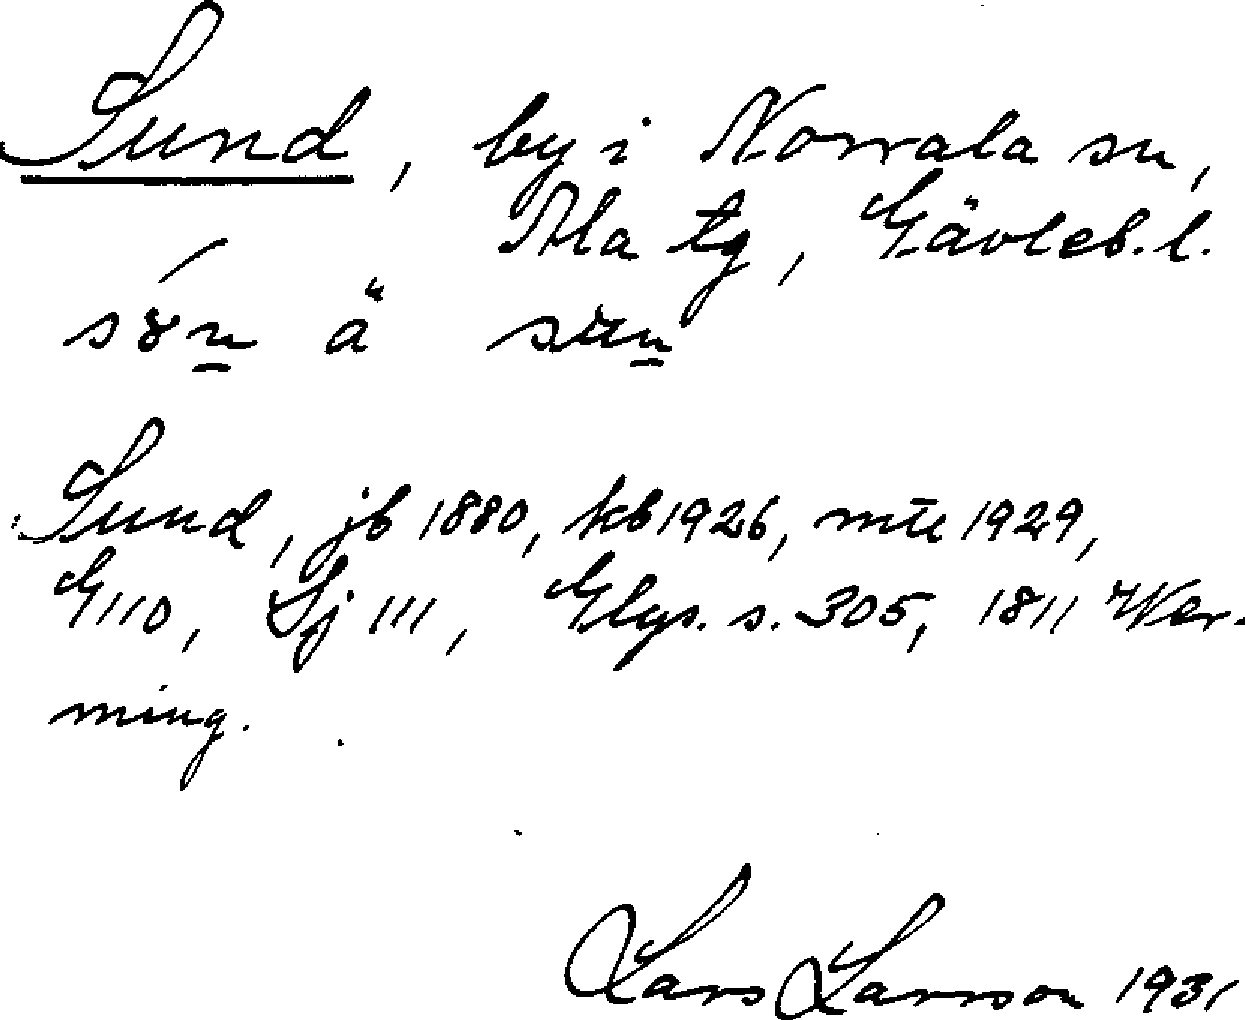 Sund, by i Norrala sn,
Ala tg, Gävleb. l.
ä
Sund, jb 1880, kb 1926, mtl 1929,
G 110, Lj 111, Glys. s. 305, 1811 Wer-
ming.
Lars Larsson 1931